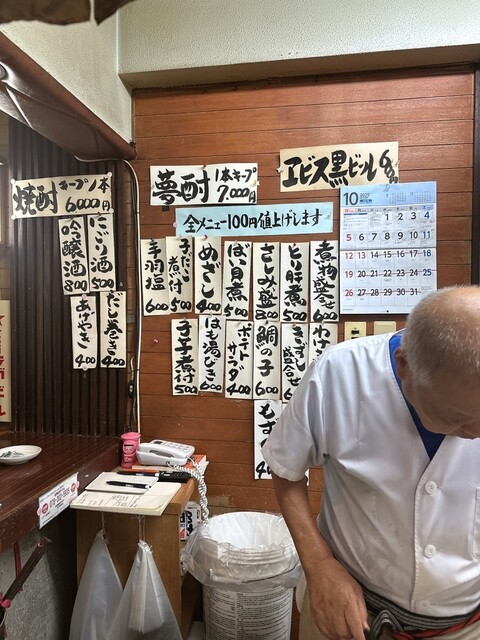 焼酎 キープ1本
6,000円
にごり酒 500
吟醸酒 800
だし巻き 400
あげやき 400
夢酎 1本キープ
7,000円
エビス黒ビール
全メニュー100円値上げします
煮物盛合せ 600
とり肝煮 500
さしみ盛 800
ばい貝煮 500
めざし 400
子だい煮付 500
手羽塩 600
わけ
きずし
盛合せ
鯛の子 600
ポテトサラダ 400
はも湯びき 600
子芋煮付 500
10
1 2 3 4
5 6 7 8 9 10 11
12 13 14 15 16 17 18
19 20 21 22 23 24 25
26 27 28 29 30 31